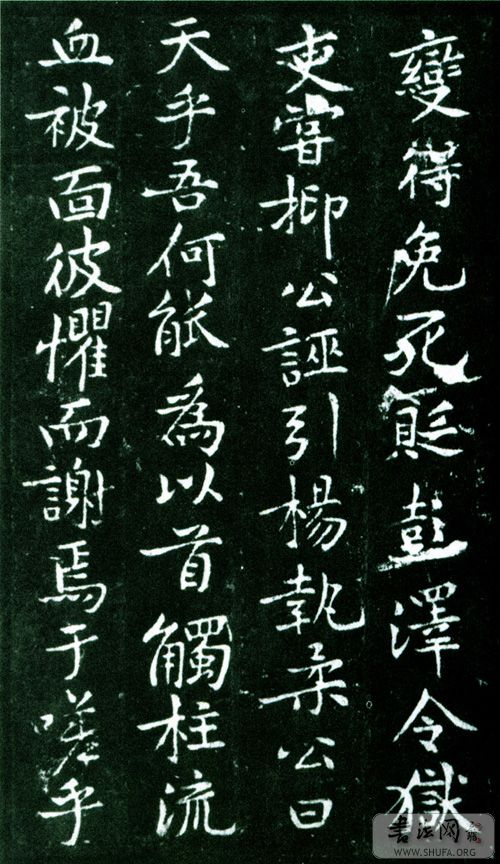 變得免死貶彭澤令獄
吏嘗抑公誣引楊執柔公曰
天乎吾何能爲以首觸柱流
血被面彼懼而謝焉于嗟乎
書法网
WWW.SHUFA.ORG